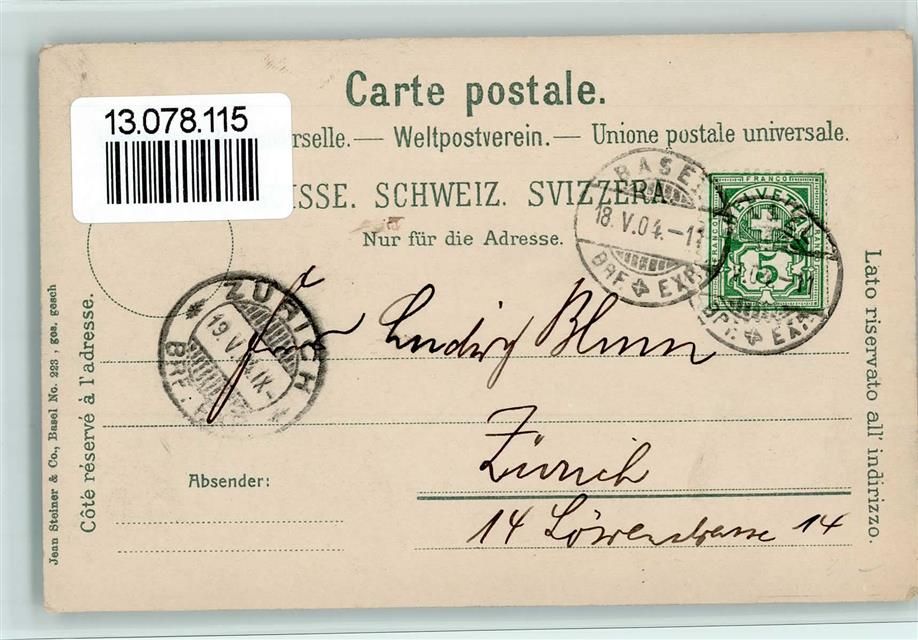 Carte postale.
13.078.115
rselle. — Weltpostverein. — Unione postale universale.
ISSE. SCHWEIZ. SVIZZERA.
Nur für die Adresse.
BASEL
18.V.04.-11
BRF. EXP.
FRANCO
HELVETIA
FRANCO
5
BRF. EXP.
ZÜRICH
19.V. IX-
BRF.
Ludwig Blum
Zürich
14 Löwenstrasse 14
Absender:
Côté réservé à l'adresse.
Jean Steiner & Co., Basel No. 223, ges. gesch
Lato riservato all' indirizzo.